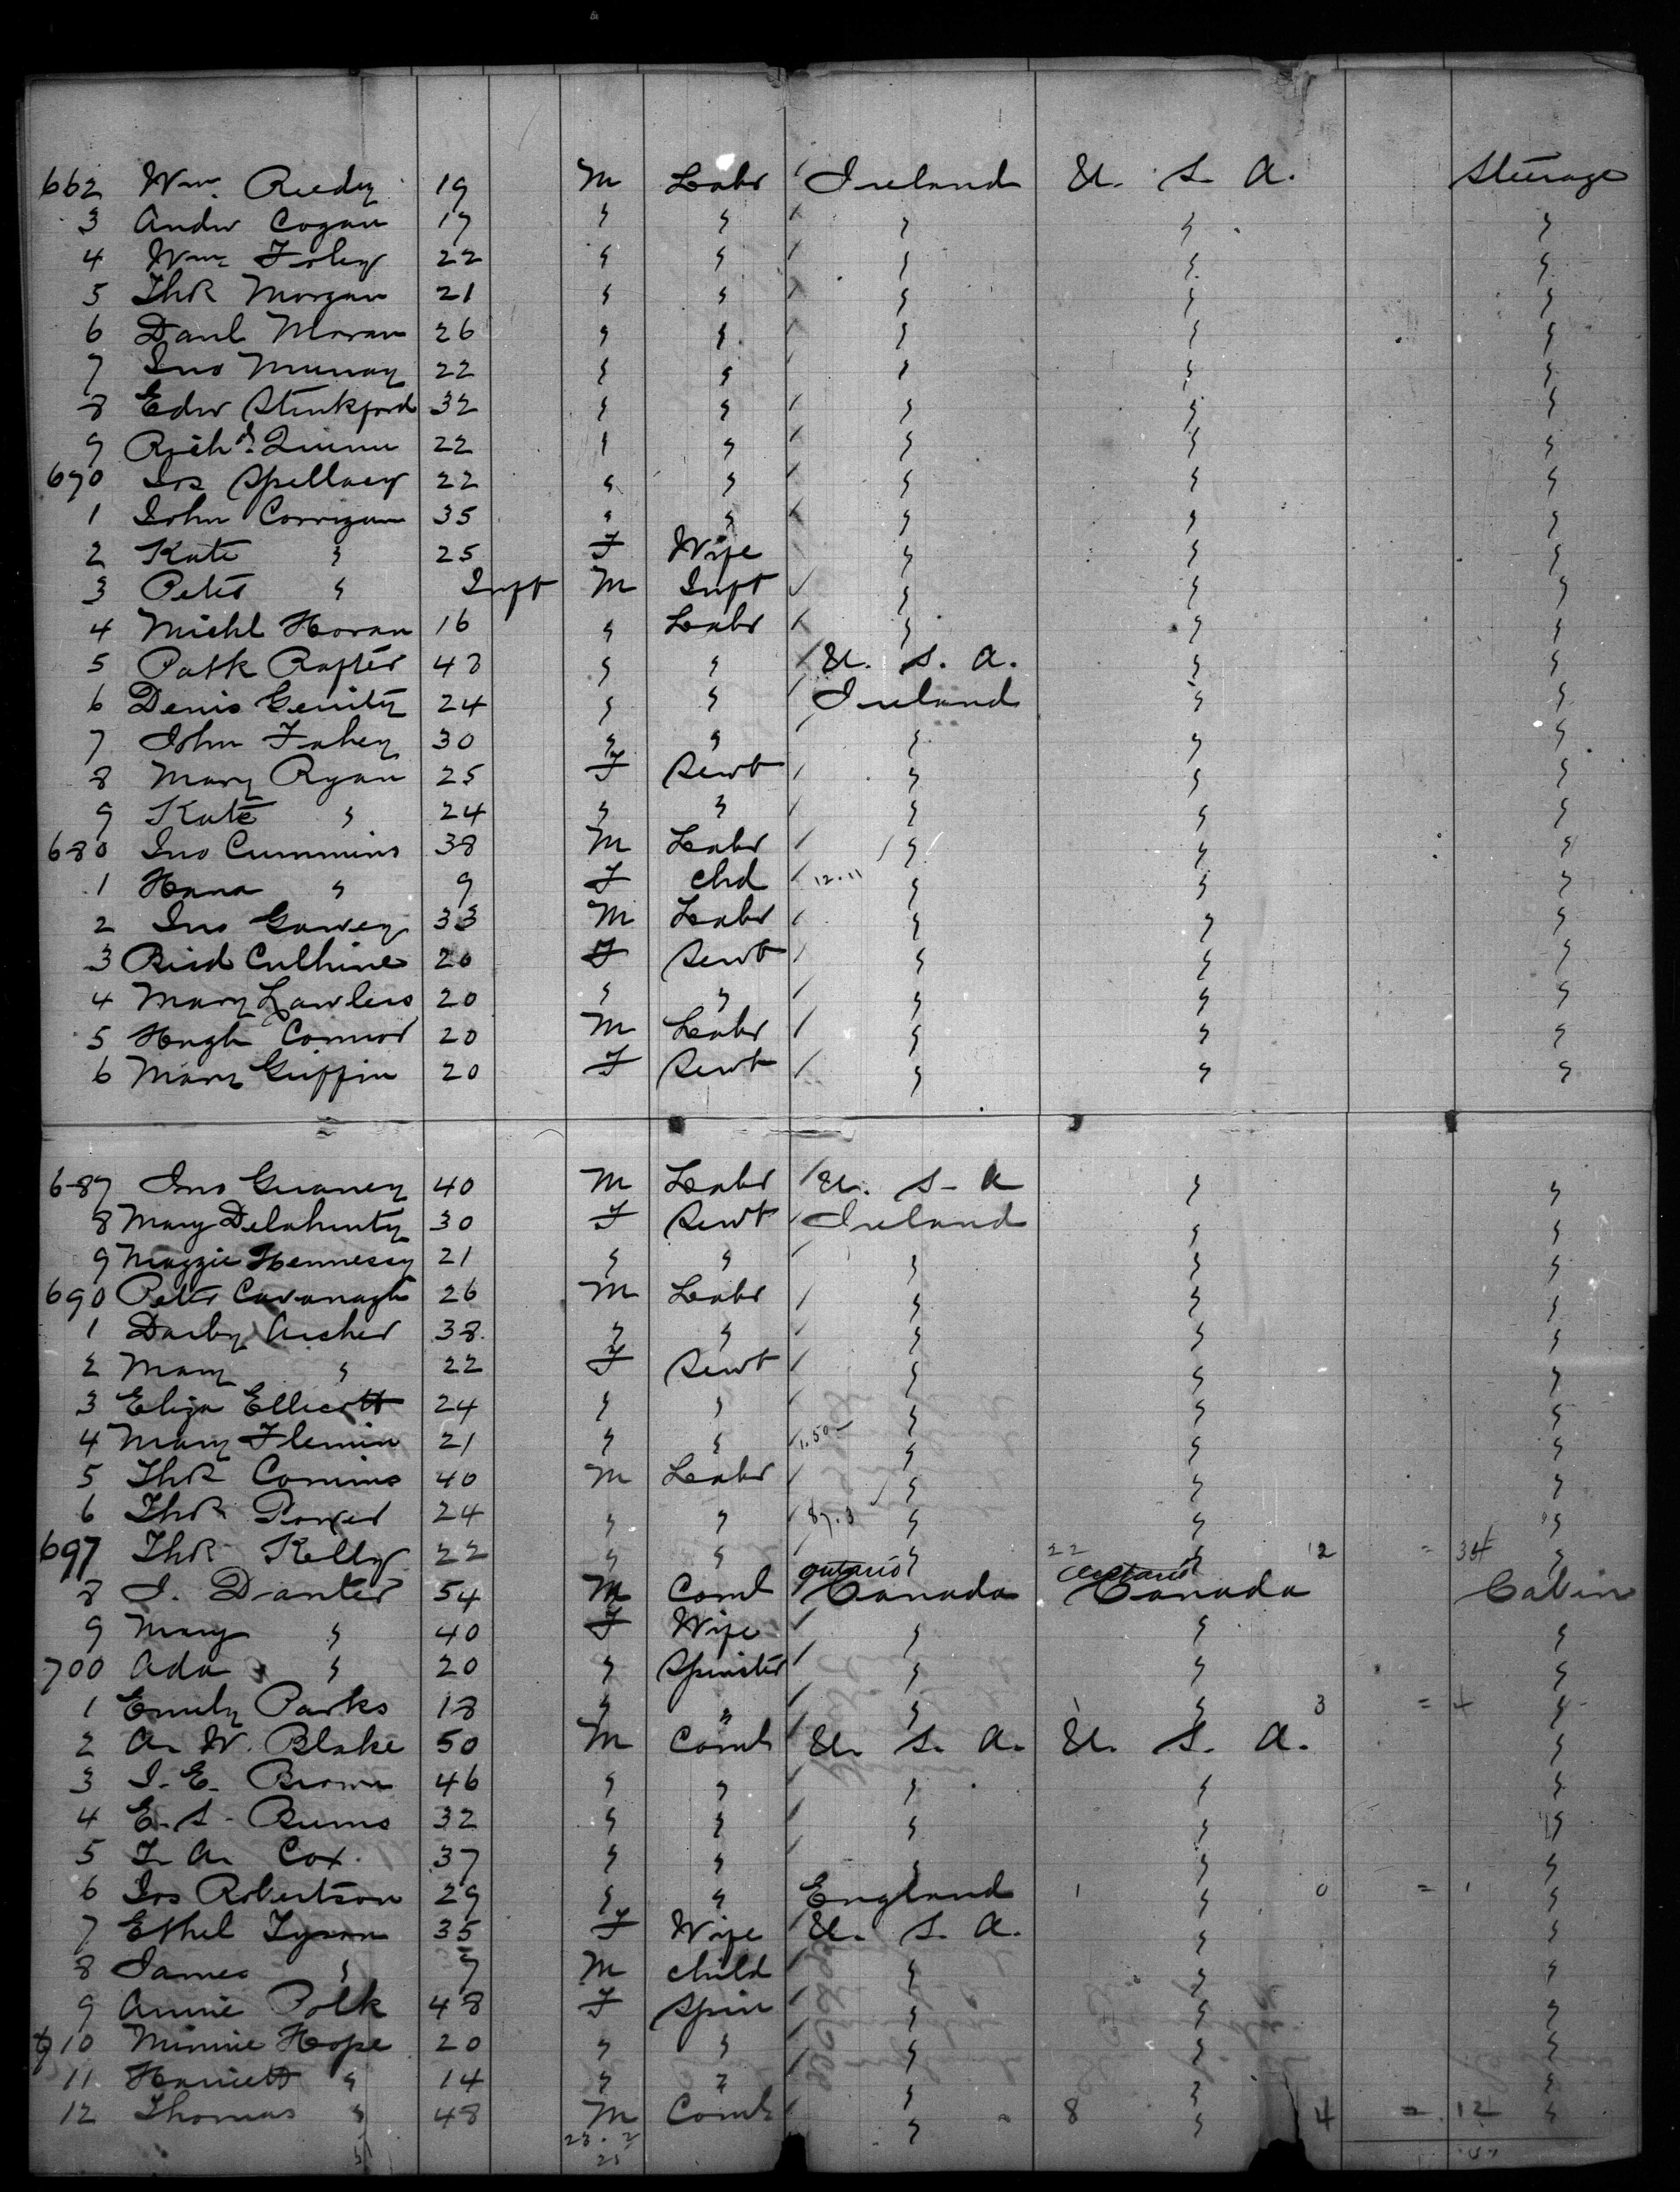 662 Wm. Reedy 19 M Labr Ireland U. S. A. Steerage
3 Andw Cogan 17 " " " " "
4 Wm Foley 22 " " " " "
5 Thos Morgan 21 " " " " "
6 Danl Moran 26 " " " " "
7 Jno Murray 22 " " " " "
8 Edw Stinkford 32 " " " " "
9 Richd. Quinn 22 " " " " "
670 Jos Spellacy 22 " " " " "
1 John Corrigan 35 " " " " "
2 Kate " 25 F Wife " " "
3 Peter " Inft M Inft " " "
4 Michl Horan 16 " Labr " " "
5 Patk Rafter 48 " " U. S. A. " "
6 Denis Gerity 24 " " Ireland " "
7 John Fahey 30 " " " " "
8 Mary Ryan 25 F Servt " " "
9 Kate " 24 " " " " "
680 Jno Cummins 38 M Labr " " "
1 Hana " 9 F chd 12.11 " " "
2 Jno Garvey 33 M Labr " " "
3 Brid Culhine 20 F Servt " " "
4 Mary Lawless 20 " " " " "
5 Hugh Connor 20 M Labr " " "
6 Mary Griffin 20 F Servt " " "
687 Jno Guaney 40 M Labr U. S. A " "
8 Mary Delahunty 30 F Servt Ireland " "
9 Maggie Hennessy 21 " " " " "
690 Peter Cavanagh 26 M Labr " " "
1 Darby Archer 38. " " " " "
2 Mary " 22 F Servt " " "
3 Eliza Ellicott 24 " " " " "
4 Mary Flemin 21 " " 1.50 " " "
5 Thos Comins 40 M Labr " " "
6 Thos Power 24 " " 87.3 " " "
697 Thos Kelly 22 " " " 22 " 12 = 34 "
Ontario Ontario
8 J. Danter 54 M Coml Canada Canada Cabin
9 Mary " 40 F Wife " " "
700 Ada " 20 " Spinster " " "
1 Emily Parks 18 " " " 1 " 3 = 4 "
2 A. W. Blake 50 M Coml U. S. A. U. S. A. "
3 J. E. Brown 46 " " " " "
4 E. S. Burns 32 " " " " "
5 F. A. Cox. 37 " " " " "
6 Jos Robertson 29 " " England 1 " 0 = 1 "
7 Ethel Tyson 35 F Wife U. S. A. " "
8 James " 7 M child " " "
9 Annie Polk 48 F Spin " " "
710 Minnie Hope 20 " " " " "
11 Hariett " 14 " " " " "
12 Thomas " 48 M Coml " 8 " 4 = 12 "
23. 2
21